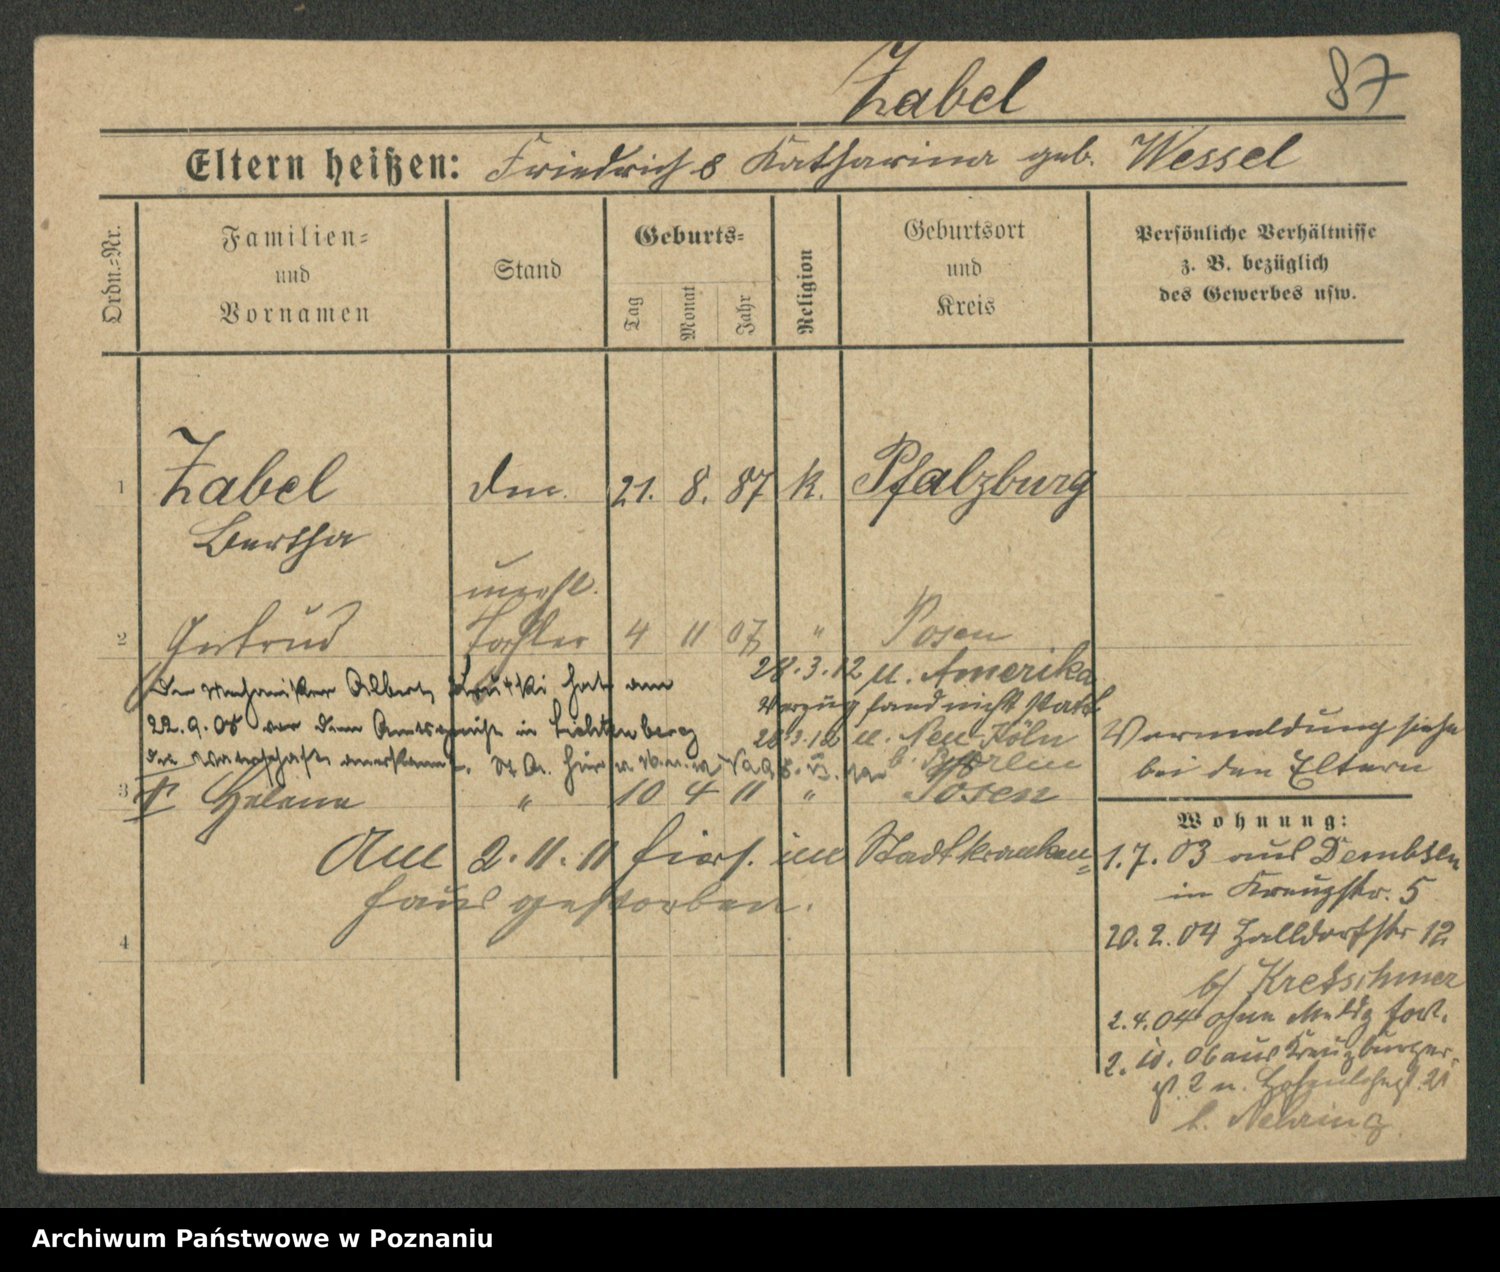 Zabel 87
Eltern heißen: Friedrich & Katharina geb. Wessel
Ordn.=Nr.
Familien=
und
Vornamen
Stand
Geburts=
Tag
Monat
Jahr
Religion
Geburtsort
und
Kreis
Persönliche Verhältnisse
z. B. bezüglich
des Gewerbes usw.
1 Zabel 21. 8. 87 k. Pfalzburg
Bertha
unehl.
2 Gertrud Tochter 4 11 07 " Posen
28.3.12 n. Amerika
Der Mechaniker Albert hat am
Verzug fand nicht statt
22.9.08 vor dem Amtsgericht in Lichtenberg
28.3.12 n. Neu Köln
die Vaterschaft anerkannt.
b. Berlin
3 Helene " 10 4 11 " Posen
Am 2.11.11 hiers. im Stadtkranken=
haus gestorben.
4
Vormeldung siehe
bei den Eltern
Wohnung:
1.7.03 aus Dembsen
in Kreuzstr. 5
20.2.04 Halldorfstr 12
b/ Kretschmer
2.4.04 ohne Meldg fort.
2. 10. 06 aus Kreuzburger=
st. 2 n. 21
b. Nehring
Archiwum Państwowe w Poznaniu